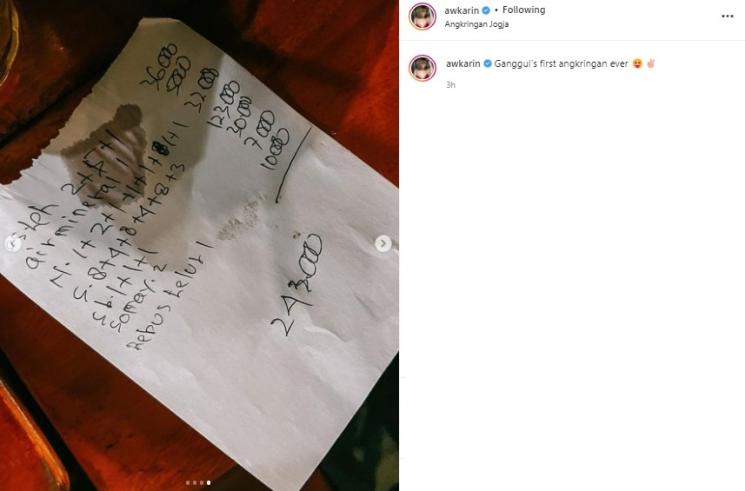 esteh 36000
air mineral 1 5000
N. 1+2+1+1+1+ 1+1 32000
S. 8+4+8+4+8+3 123000
Sb. 1+1+1 30000
Somay. 2 7000
Rebus telur 1 10000
243.000
awkarin • Following
Angkringan Jogja
awkarin Ganggui's first angkringan ever 🥵✌🏻
3h